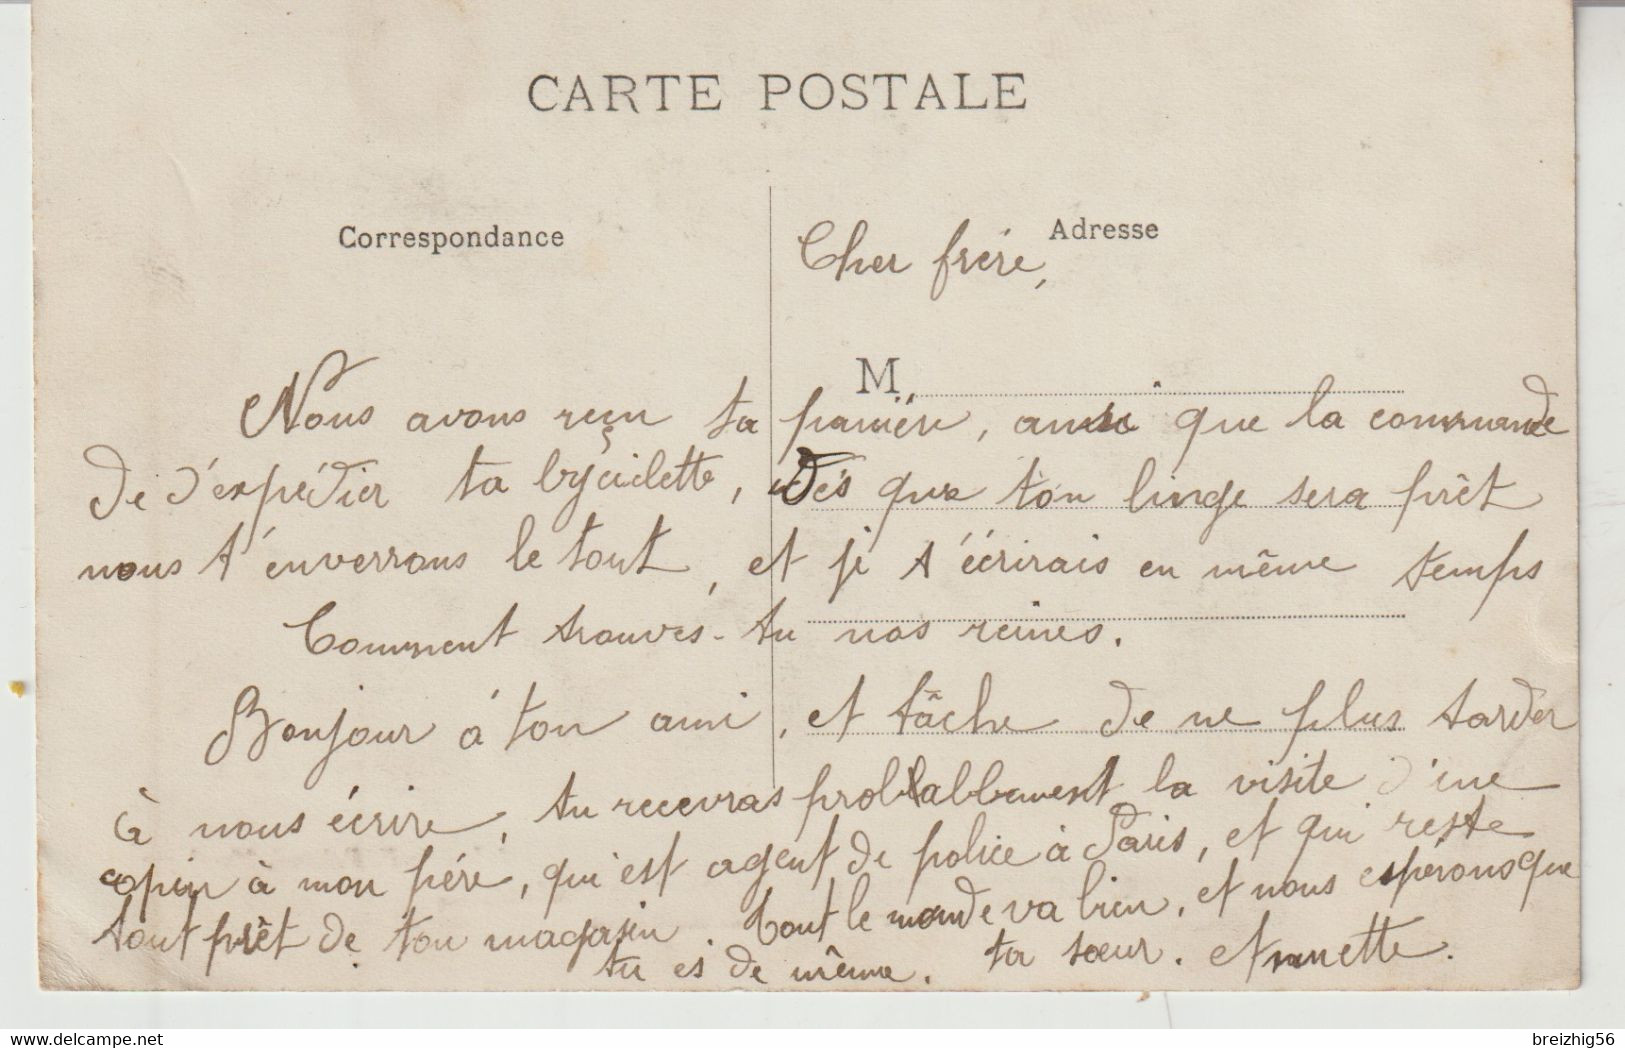 CARTE POSTALE
Correspondance
Adresse
Cher frére,
M
Nous avons reçu ta paniére, ainsi que la commande
de d'expédier ta byciclette, Dés que ton linge sera prêt
nous t'enverrons le tout, et je t'écrirais en même temps
Comment trouves-tu nos reines.
Bonjour á ton ami, et tâche de ne plus tarder
à nous écrire, tu recevras probablement la visite d'une
copin à mon pére, qui est agent de police à Paris, et qui reste
tout prêt de ton magasin. Tout le monde va bien, et nous espérons que
tu es de même. ta sœur. Annette.
delcampe.net
breizhig56